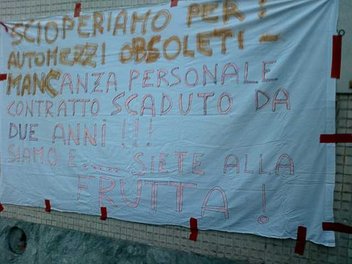 SCIOPERIAMO PER :
AUTOMEZZI OBSOLETI -
MANCANZA PERSONALE
CONTRATTO SCADUTO DA
DUE ANNI !!!
SIAMO E .... SIETE ALLA
FRUTTA !